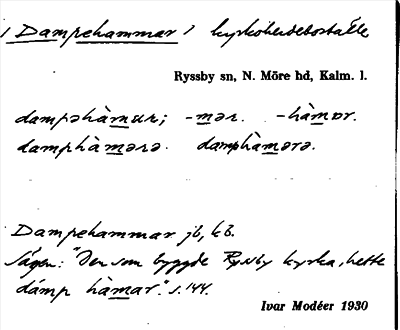 / Dampehammar / kyrkoherdeboställe
Ryssby sn, N. Möre hd, Kalm. l.
dampəhàmar; -mər. -hàmɒr.
damphàmərə. damphàmərə.
Dampehammar jb, kb.
Sägen: "Den som byggde Ryssby kyrka, hette
dámp hàmar". s. 144.
Ivar Modéer 1930